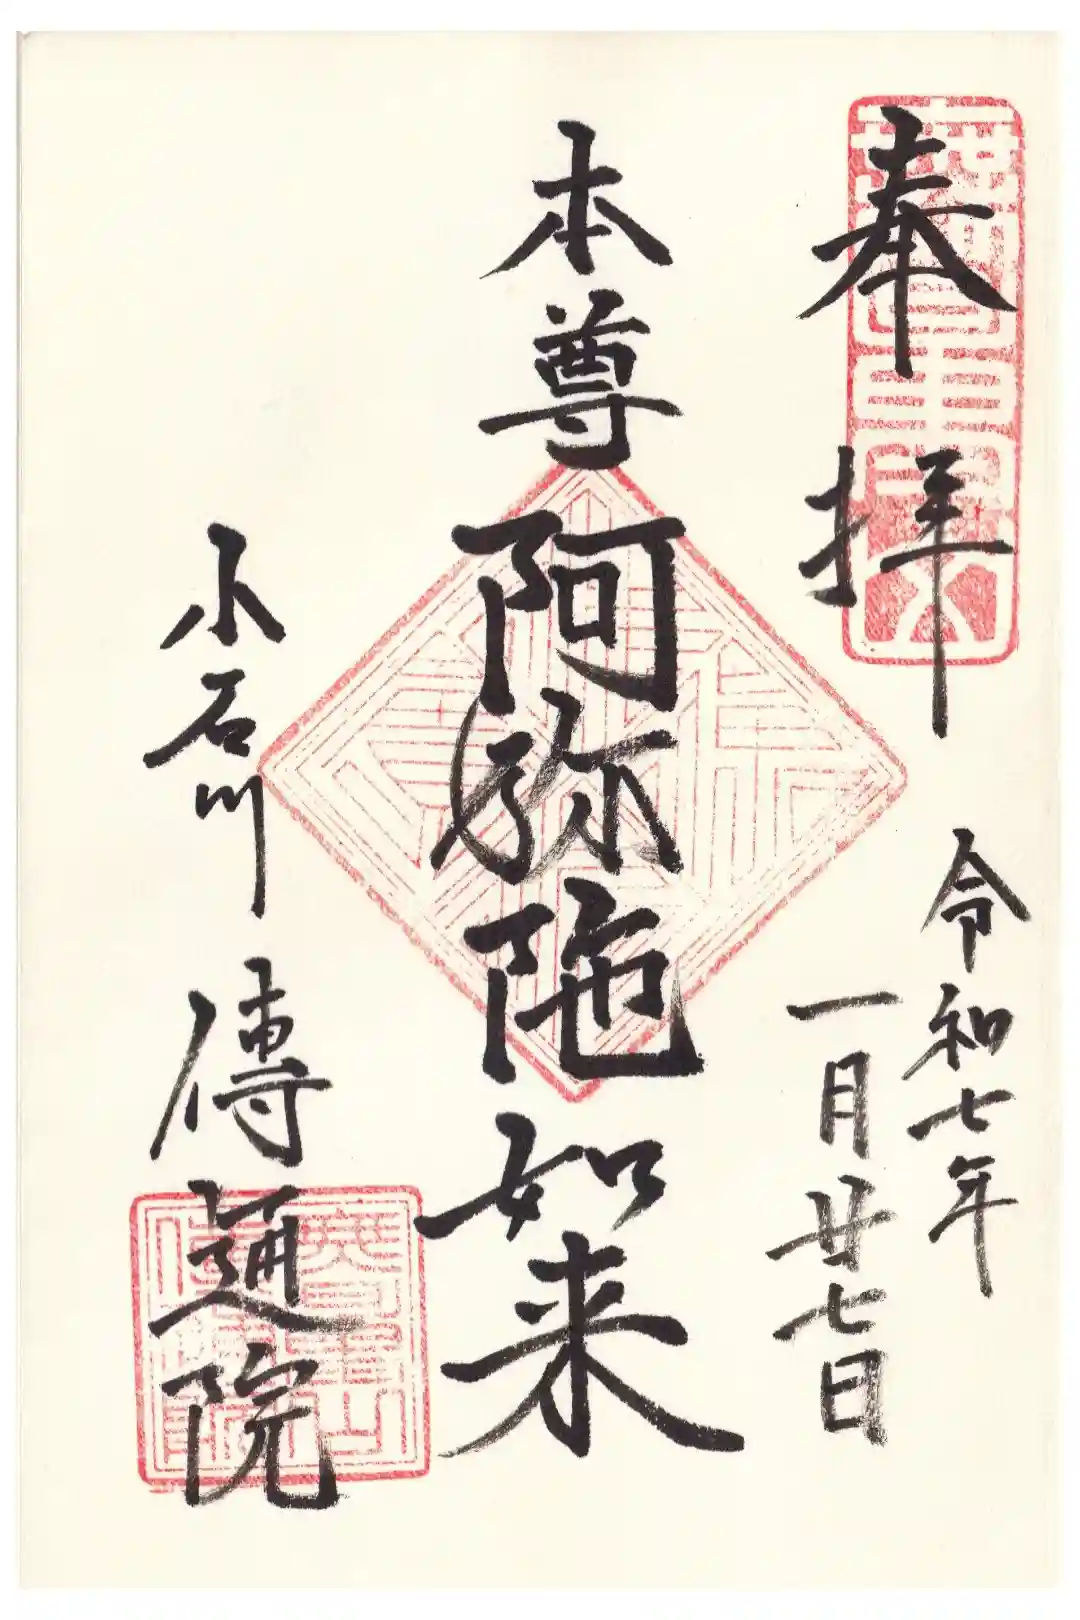 奉拝
令和七年
一月廿七日
本尊阿弥陀如来
小石川傳通院